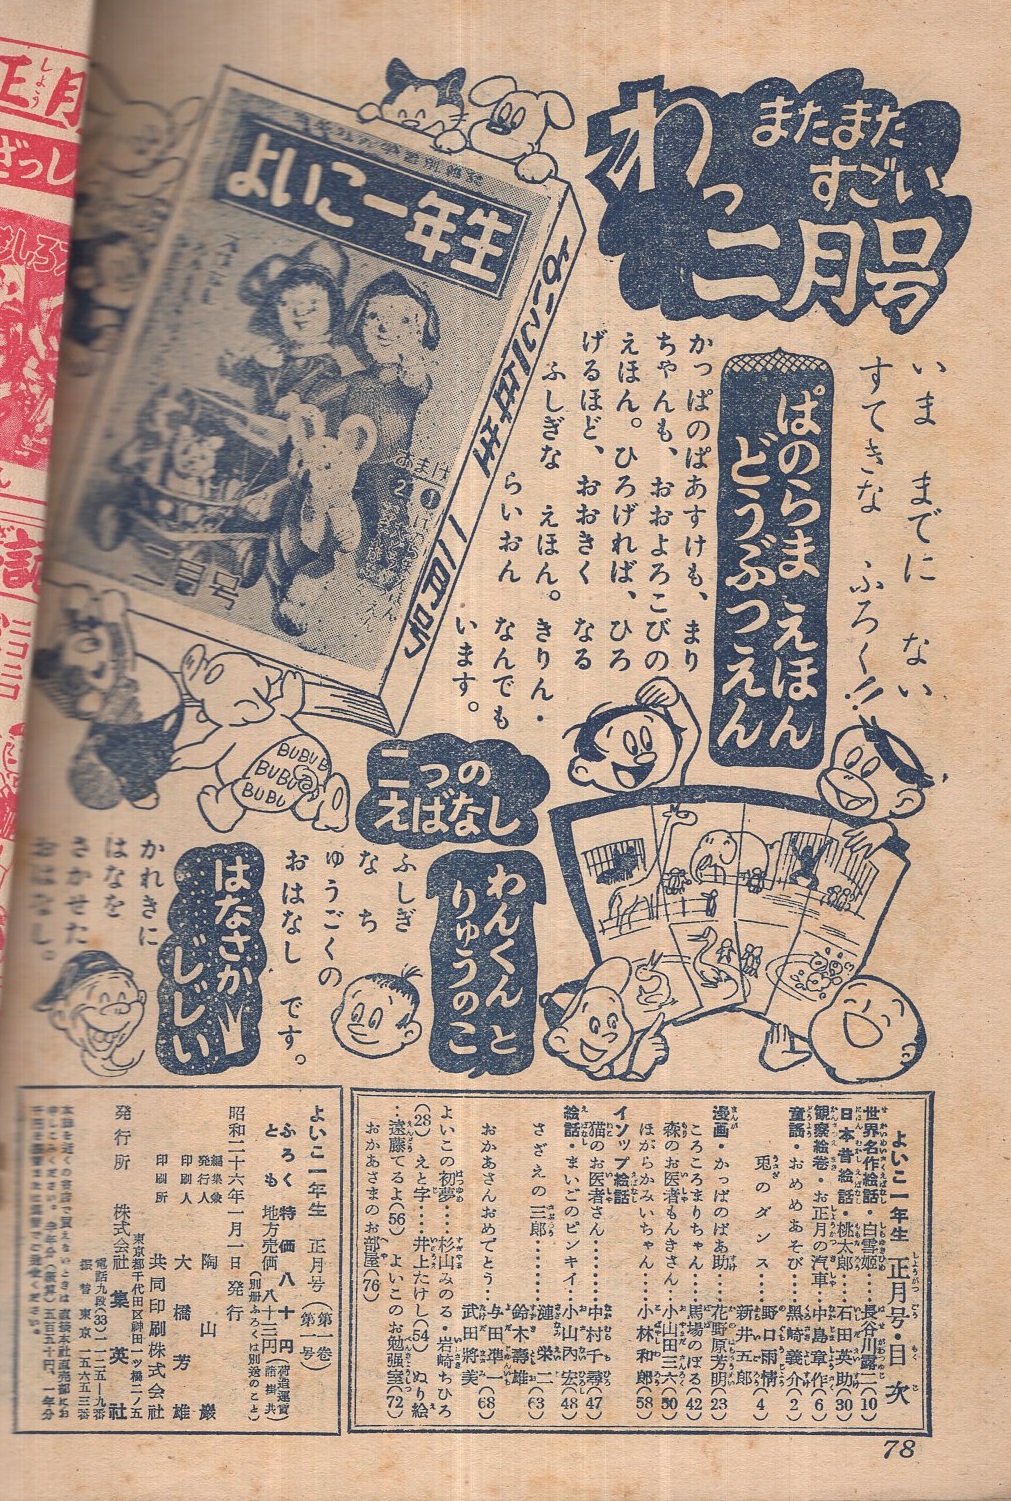 わっ
またまた
すごい
二月号
いま までに ない
すてきな ふろく!!
ぱのらま えほん
どうぶつえん
かっぱのぱあすけも、まり
ちゃんも、おおよろこびの
えほん。ひろげれば、ひろ
げるほど、おおきく なる
ふしぎな えほん。きりん・
らいおん なんでも
います。
よいこ一年生
二月号
おまけ
BUBUB
BUBU
BUBU
二つの
えばなし
わんくんと
りゅうのこ
ふしぎ
な ち
ゅうごくの
おはなし です。
はなさか
じじい
かれきに
はなを
さかせた
おはなし。
よいこ一年生 正月号・目次
世界名作絵話・白雪姫……長谷川露二(10)
日本昔絵話・桃太郎……石田英助(30)
観察絵巻・お正月の汽車…中島章作(6)
童謡・おめめあそび……黒崎義介(2)
兎のダンス……野口雨情(4)
新井五郎
漫画・かっぱのぱあ助……花野原芳明(23)
ころころまりちゃん……馬場のぼる(42)
森のお医者もんきさん…小山田三六(50)
ほがらかみいちゃん……小林和郎(58)
イソップ絵話
猫のお医者さん………中村千尋(47)
絵話・まいごのピンキイ…小山内宏(48)
さざえの三郎………漣 栄二(63)
鈴木壽雄
おかあさんおめでとう……与田準一(68)
武田將美
よいこの初夢……杉山みのる・岩崎ちひろ
(28) えと字……井上たけし(54) ぬり絵
…遠藤てるよ(56) よいこのお勉强室(72)
おかあさまのお部屋(76)
よいこ一年生 正月号(第一巻 第一号)
ふろく とも 特価八十円(荷造運賃諸掛共)
地方売価 八十三円(別册ふろくは別送のこと)
昭和二十六年一月一日発行
編集兼 発行人 陶山 巌
印刷人 大橋芳雄
印刷所 共同印刷株式会社
東京都千代田区神田一ッ橋二ノ五
発行所 株式会社 集英社
電話九段(33)一一二五―九番
振替東京一五六五三番
78
正月
ざっし
ニコニコ